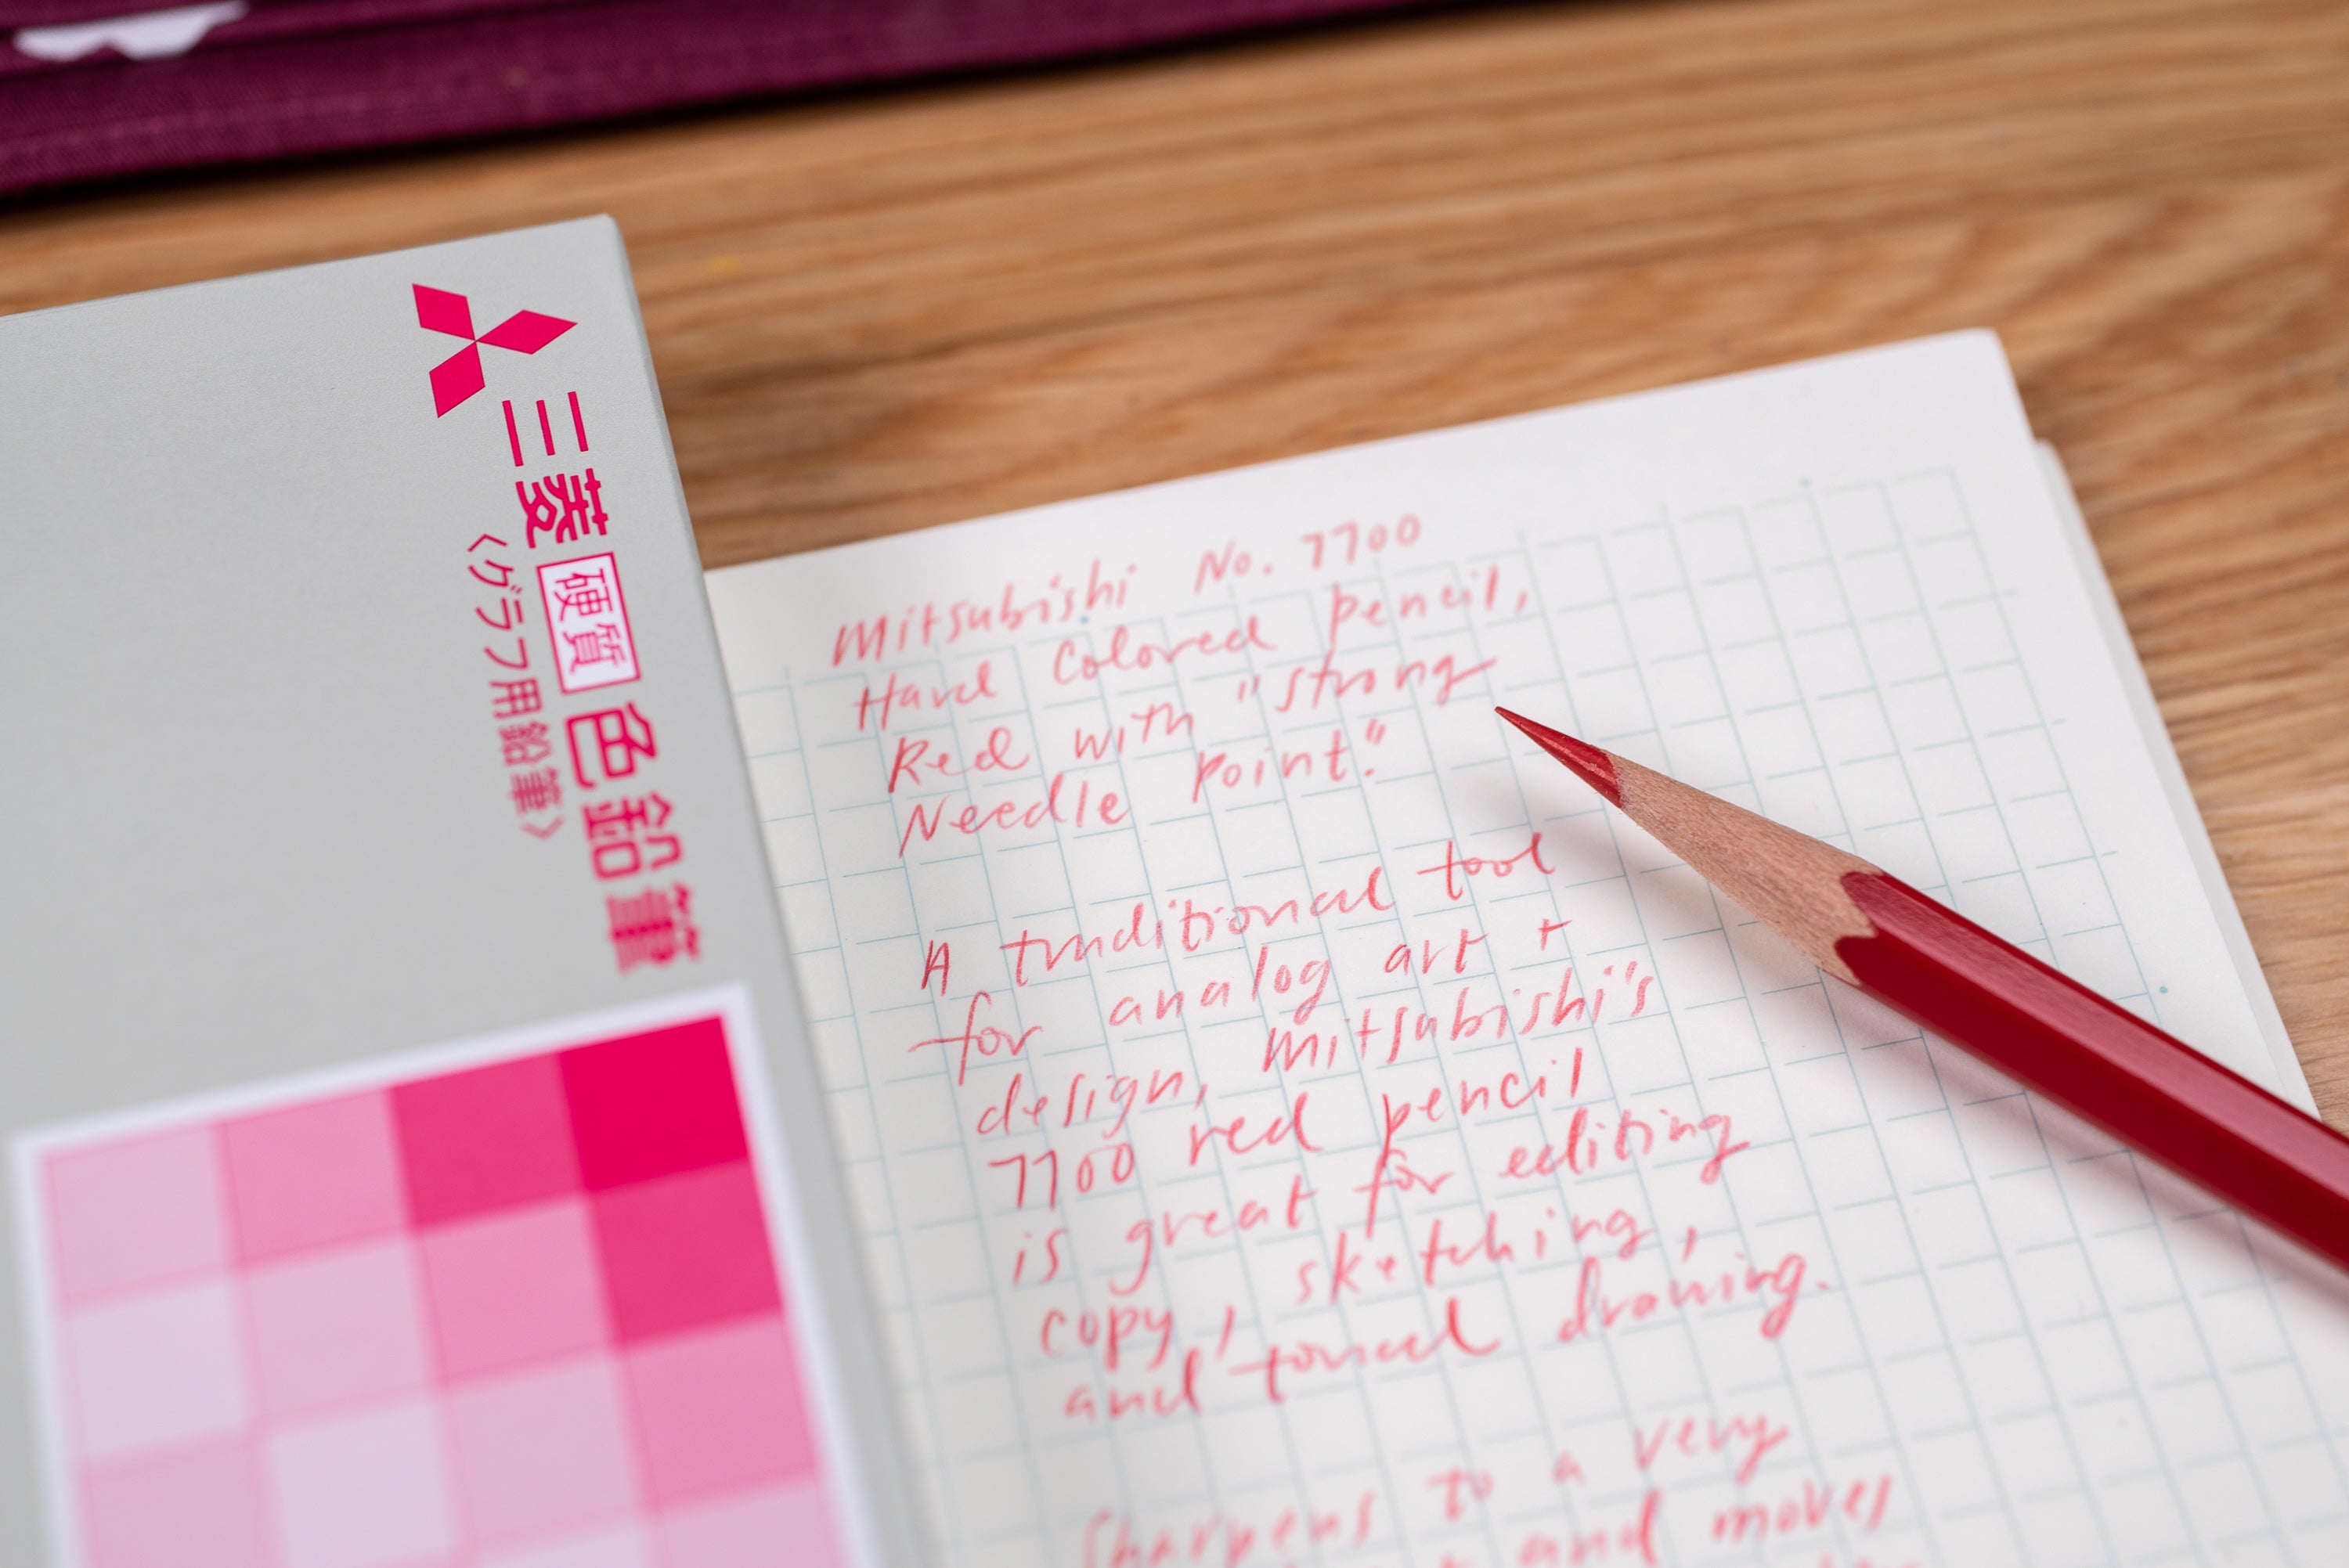 三菱硬質色鉛筆
〈グラフ用鉛筆〉
Mitsubishi No. 7700
Hard Colored pencil,
Red with "strong
Needle point."
A traditional tool
for analog art +
design, Mitsubishi's
7700 red pencil
is great for editing
copy, sketching,
and tonal drawing.
Sharpens to a very
and moves